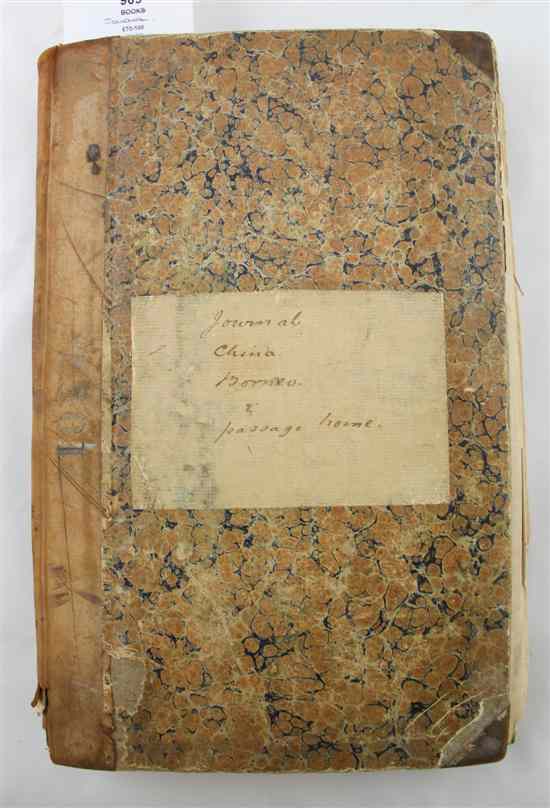 BOOKS
Journal
China.
Borneo.
&
passage home.